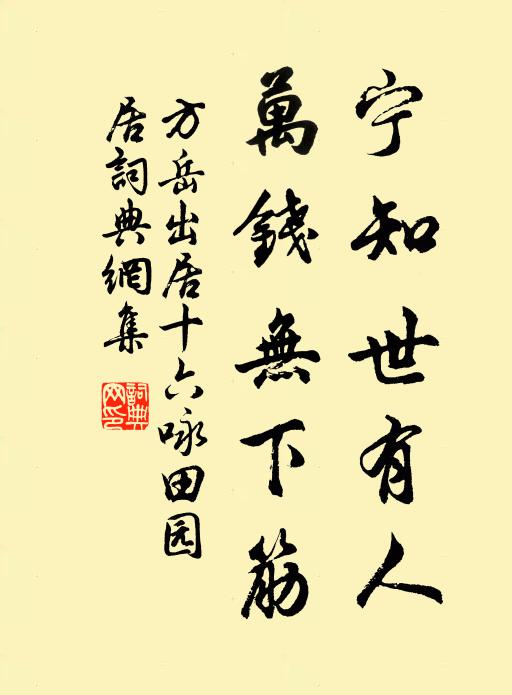 宁知世有人
萬錢無下筯
方岳出居十六咏田园
居詞典網集
詞典
网印